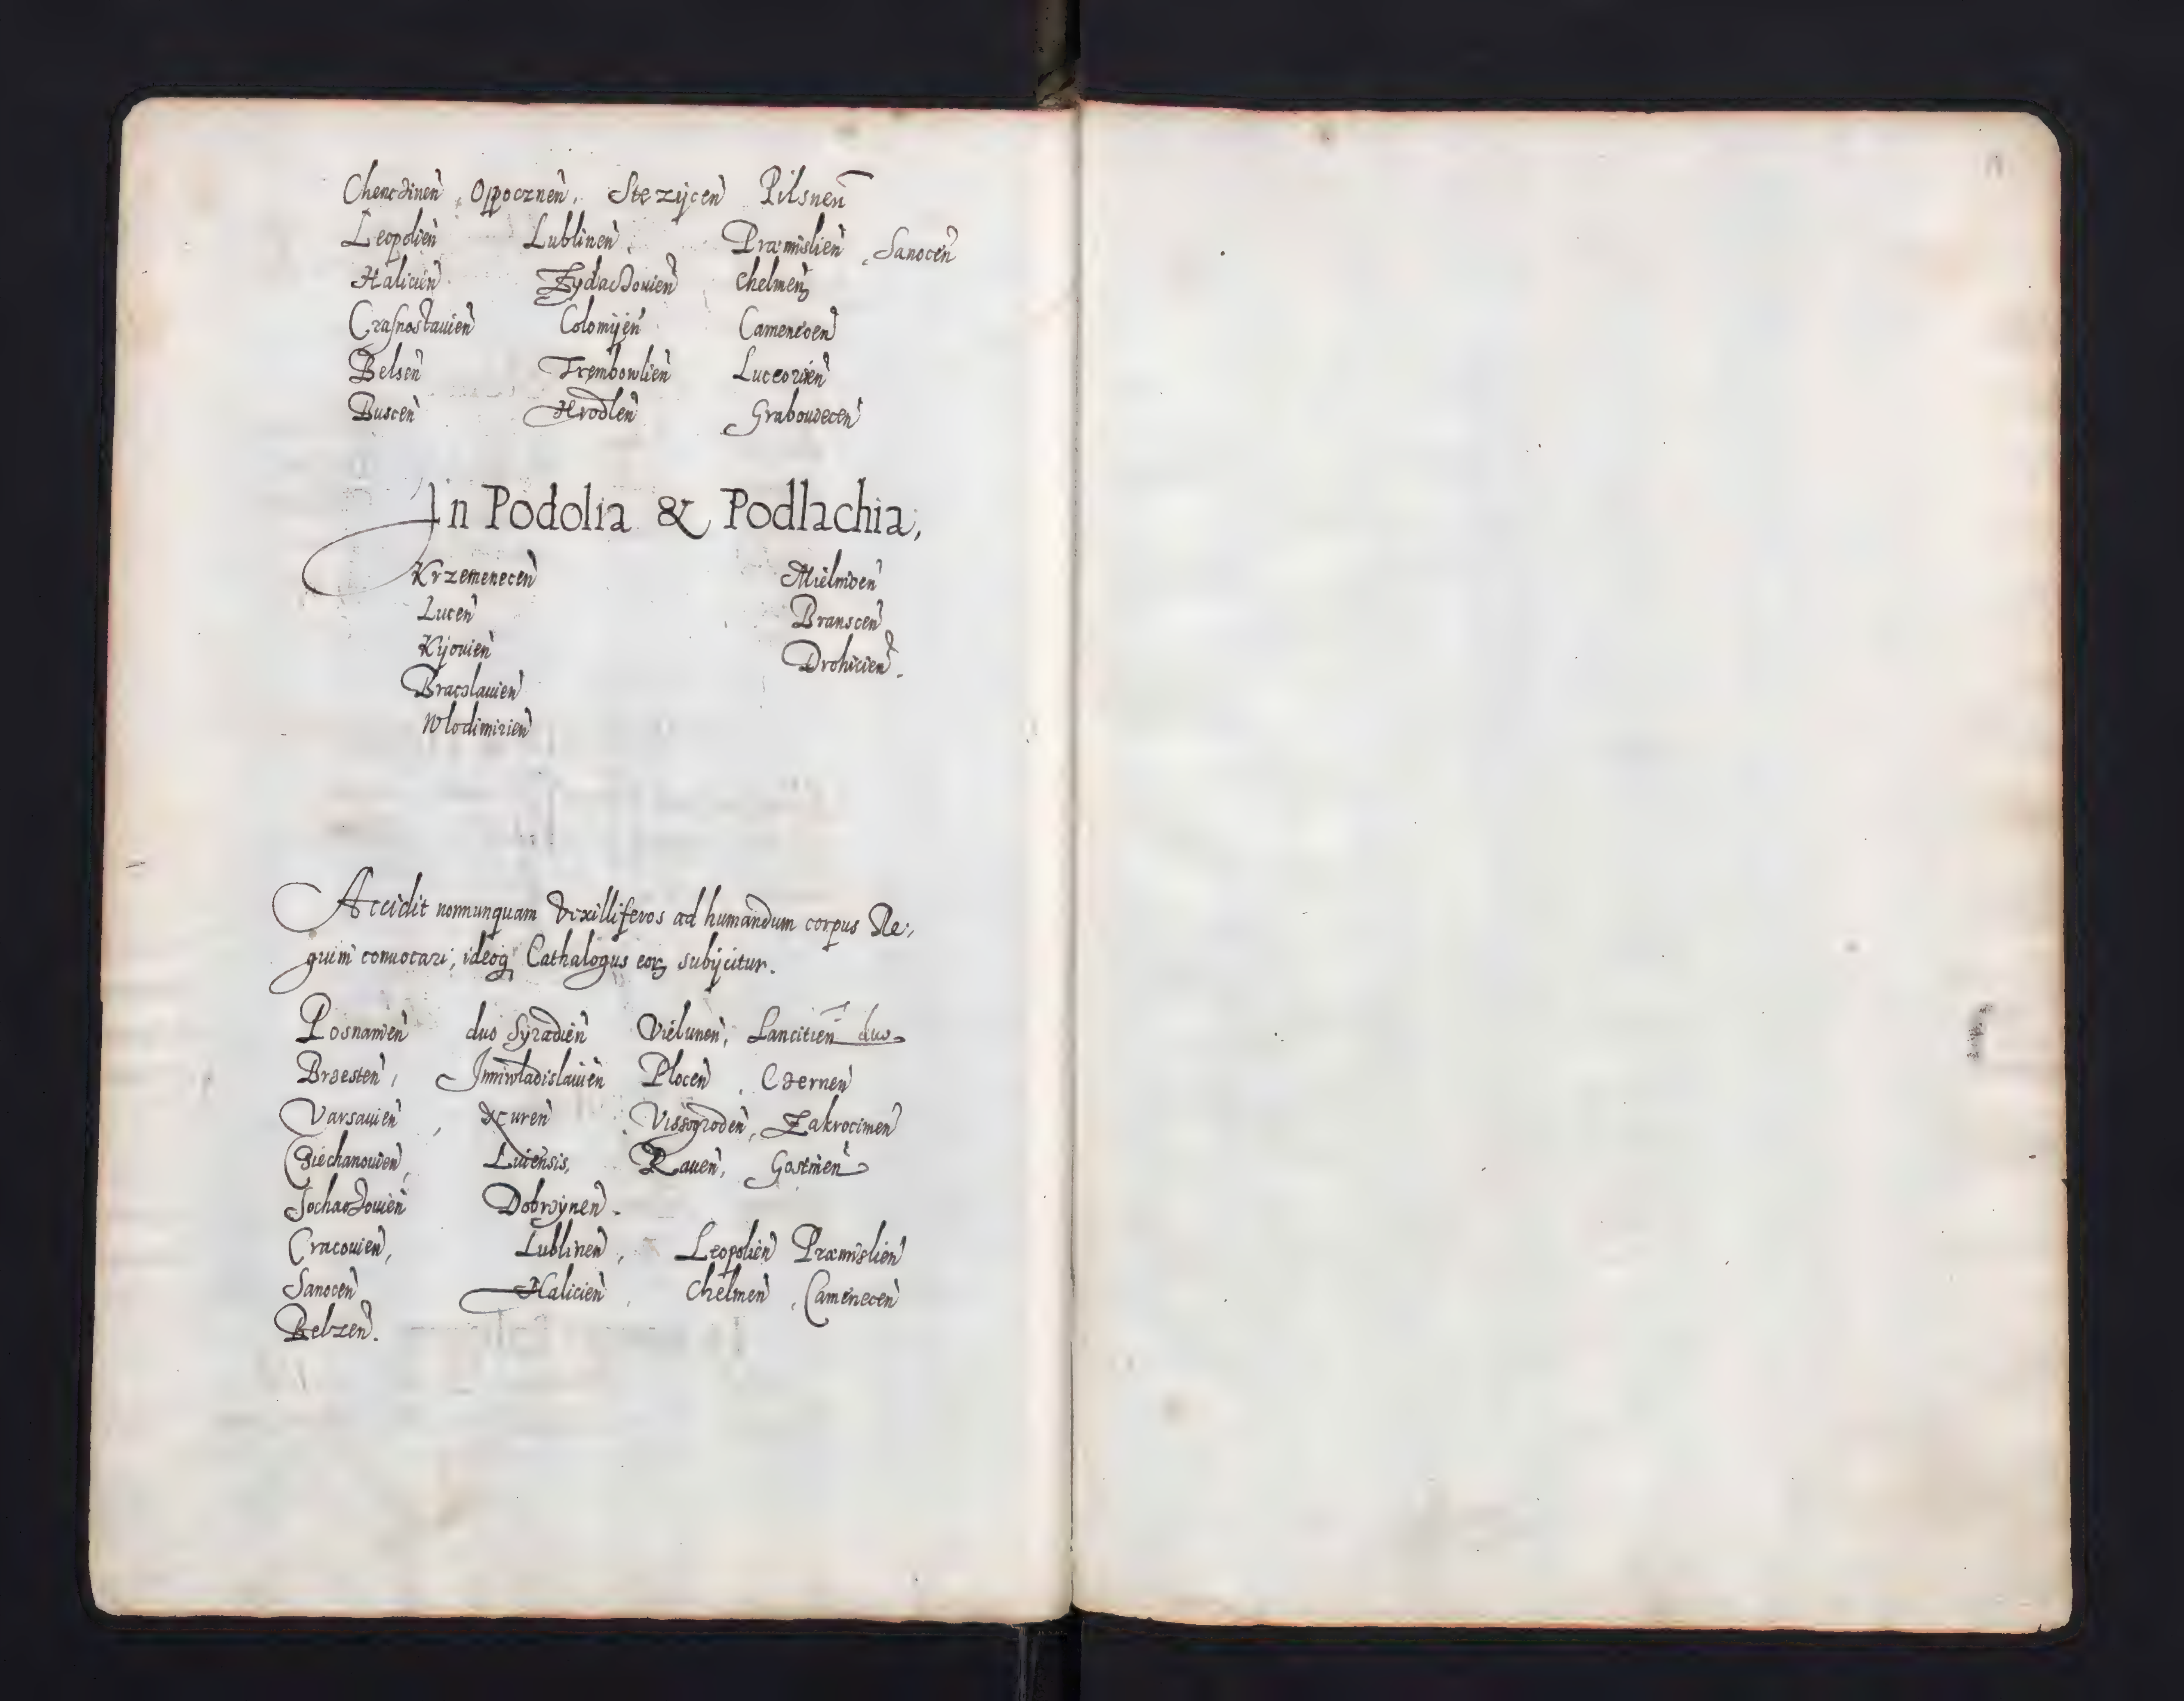 Chencinen̄, Oppocznen̄. Stezijcen̄ Pilsnen̄
Leopolien̄ Lublinen̄, Præmislien̄, Sanocen̄
Halicien̄ Zydaczouien̄ Chelmen̄
Crasnostauien̄ Colomijen̄ Camenecen̄
Belsen̄ Trembowlien̄ Luceorien̄
Buscen̄ Hrodlen̄ Grabouecen̄
In Podolia & Podlachia,
Krzemenecen̄ Mielnicen̄
Lucen̄ Branscen̄
Kijouien̄ Drohicien̄.
Braczlauien̄
Wlodimirien̄
Accidit nonnunquam Vexilliferos ad humandum corpus Re:,
guim conuocari, ideoq Cathalogus eorꝝ subijcitur.
Posnanien̄ duo Syradien̄ Vielunen̄, Lancitien̄ duo
Brzesten̄, Inniwladislauien̄ Plocen̄, Czernen̄
Varsauien̄, Nuren̄, Vissogroden̄, Zakrocimen̄
Ciechanouien̄, Liuensis, Rauen̄, Gostinen̄
Sochaczouien̄ Dobrzynen̄.
Cracouien̄, Lublinen̄, Leopolien̄ Præmislien̄
Sanocen̄ Halicien̄, Chelmen̄, Camenecen̄
Belzen̄.